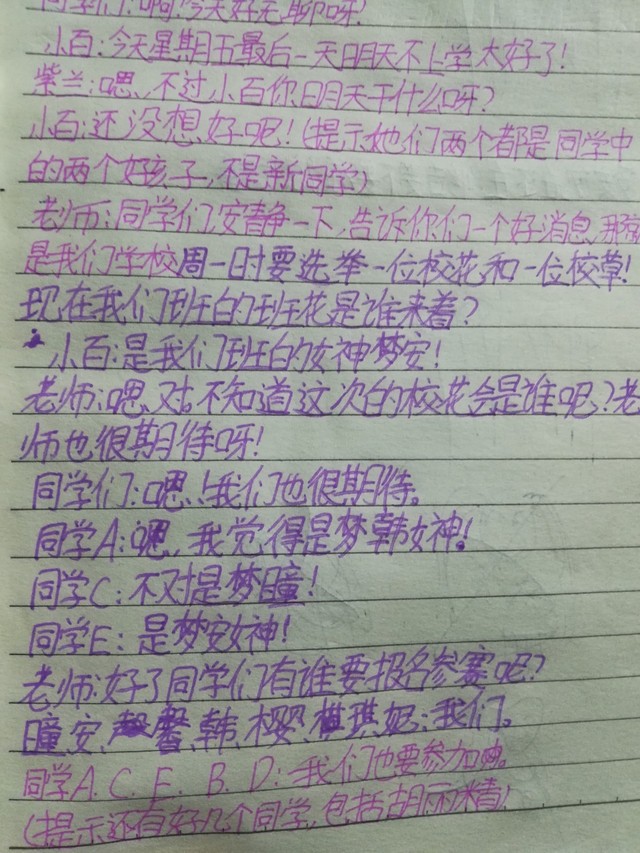 同学们:啊!今天好无聊呀!
小百:今天星期五最后一天明天不上学太好了!
紫兰:嗯,不过小百你明天干什么呀?
小百:还没想好呢!(提示她们两个都是同学中
的两个好孩子,不是新同学)
老师:同学们安静一下,告诉你们一个好消息,那就
是我们学校周一时要选举一位校花和一位校草!
现在我们班的班花是谁来着?
小百:是我们班的女神梦安!
老师:嗯、对。不知道这次的校花会是谁呢?老
师也很期待呀!
同学们:嗯!我们也很期待。
同学A:嗯,我觉得是梦韩女神!
同学C:不对是梦瞳!
同学E:是梦安女神!
老师:好了同学们有谁要报名参赛呢?
瞳、安、馨、韩、樱、琪、妮:我们。
同学A.C.E.B.D:我们也要参加
(提示还有好几个同学,包括胡丽精)